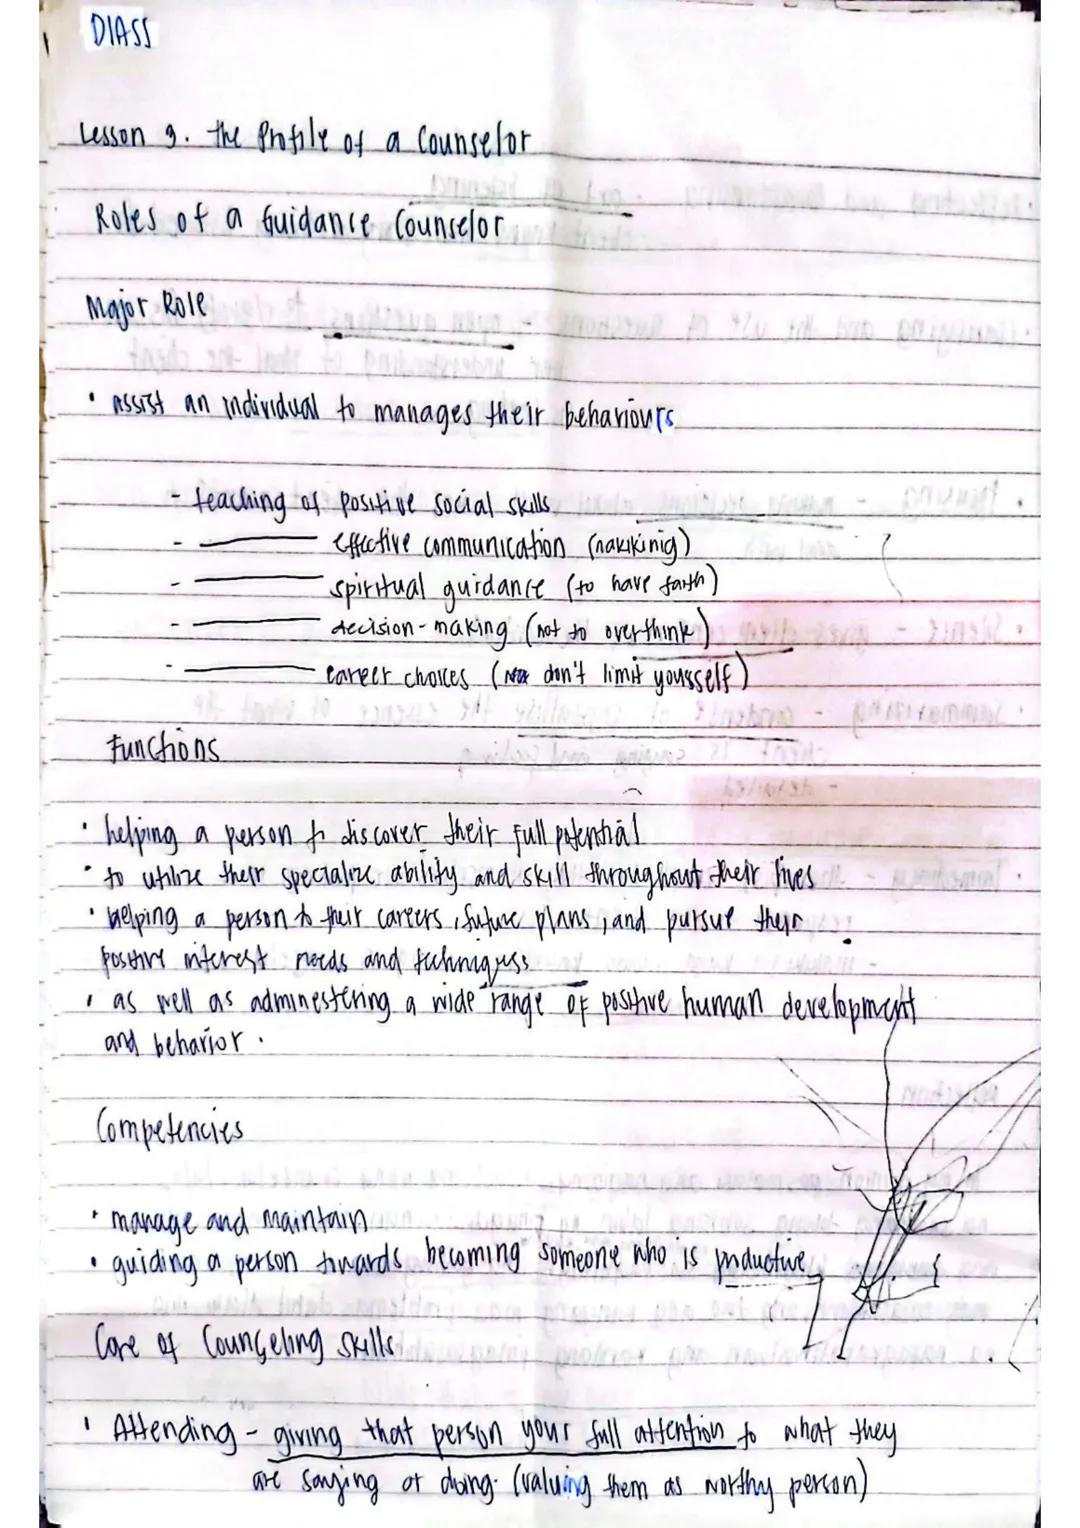 DIASS
Lesson 3. the Profile of a Counselor
Roles of a Guidance Counselor
Major Role
• assist an individual to manages their behaviours
- teaching of positive social skills
- effective communication (nakikinig)
- spiritual guidance (to have faith)
- decision-making (not to overthink)
- career choices ( don't limit yousself)
Functions
• helping a person to discover their full potential
• to utilize their specialize ability and skill throughout their lives
• helping a person to their careers, future plans, and pursue their
positive interest needs and techniquess
• as well as adminestering a wide range of positive human development
and behavior.
Competencies
• manage and maintain
• guiding a person towards becoming someone who is productive
Core of Counseling Skills
• Attending - giving that person your full attention to what they
are saying or doing. (valuing them as worthy person)